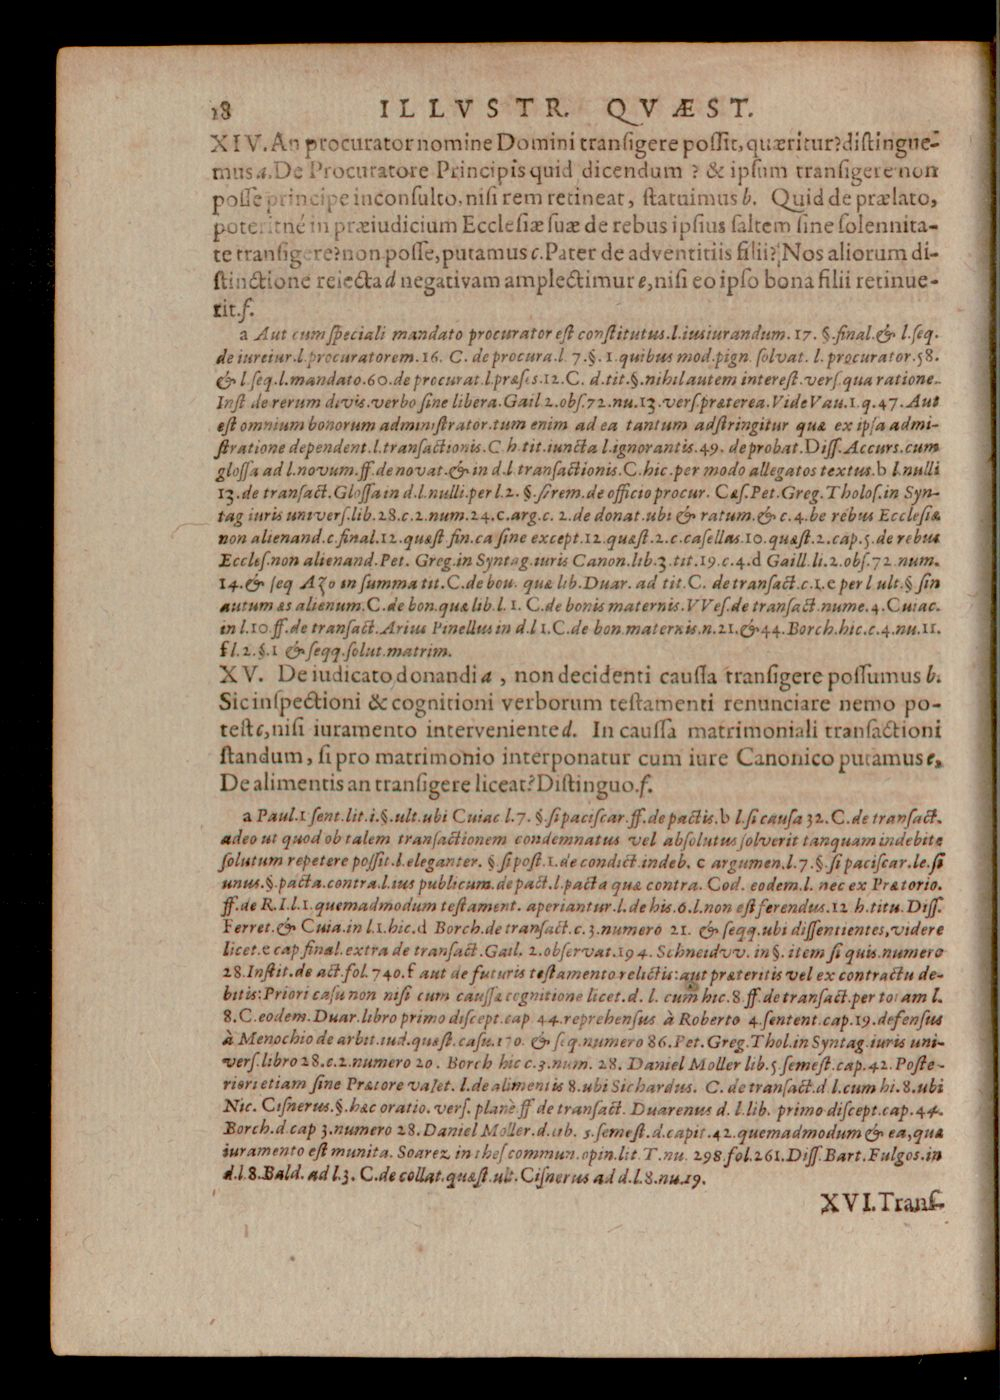 18 ILLVSTR. QVÆST.
XIV. An procurator nomine Domini transigere possit, quæritur? distingue-
mus a. De Procuratore Principis quid dicendum ? & ipsum transigere non
posse principe inconsulto, nisi rem retineat, statuimus b. Quid de prælato,
poteritné in præiudicium Ecclesiæ suæ de rebus ipsius saltem sine solennita-
te transigere? non posse, putamus c. Pater de adventitiis filii? Nos aliorum di-
stinctione reiecta d negativam amplectimur e, nisi eo ipso bona filii retinue-
rit. f.
a Aut cum speciali mandato procurator est constitutus. l. iusiurandum. 17. §. final. & l. seq.
de iureiur. l. procuratorem. 16. C. de procura. l. 7. §. 1. quibus mod. pign. solvat. l. procurator. 58.
& l. seq. l. mandato. 60. de procurat. l. præses. 12. C. d. tit. §. nihil autem interest. vers. qua ratione.
Inst de rerum divis. verbo sine libera. Gail 2. obs. 72. nu. 13. vers. præterea. Vide Vau. 1. q. 47. Aut
est omnium bonorum administrator. tum enim ad ea tantum adstringitur quæ ex ipsa admi-
stratione dependent. l. transactionis. C h. tit. iuncta l. ignorantis. 49. de probat. Diss. Accurs. cum
glossa ad l. novum. ff. de novat. & in d. l. transactionis. C. hic. per modo allegatos textus. b l. nulli
13. de transact. Glossa in d. l. nulli. per l. 2. §. si rem. de officio procur. Cæs. Pet. Greg. Tholos. in Syn-
tag iuris univers. lib. 28. c. 2. num. 24. c. arg. c. 2. de donat. ubi & ratum. & c. 4. be rebus Ecclesiæ
non alienand. c. final. 12. quæst fin. ca sine except. 12. quæst. 2. c. casellas. 10. quæst. 2. cap. 5. de rebus
Eccles. non alienand. Pet. Greg. in Syntag. iuris Canon. lib. 3. tit. 19. c. 4. d Gaill. li. 2. obs. 72. num.
14. & seq Azo in summa tit. C. de bou. quæ lib. Duar. ad tit. C. de transact. c. 1. e per l ult. §. sin
autum æs alienum. C. de bon. quæ lib. l. 1. C. de bonis maternis. VVes. de transact. nume. 4. Cuiac.
in l. 10. ff. de transact. Arius Pinellus in d. l 1. C. de bon. maternis. n. 21. & 44. Borch. hic. c. 4. nu. 11.
f l. 2. §. 1 & seqq. solut. matrim.
XV. De iudicato donandi a , non decidenti caussa transigere possumus b.
Sic inspectioni & cognitioni verborum testamenti renunciare nemo po-
test c, nisi iuramento interveniente d. In caussa matrimoniali transactioni
standum, si pro matrimonio interponatur cum iure Canonico putamus e.
De alimentis an transigere liceat? Distinguo. f.
a Paul. 1 sent. lit. i. §. ult. ubi Cuiac l. 7. §. si paciscar. ff. de pactis. b l. si causa 32. C. de transact.
adeo ut quod ob talem transactionem condemnatus vel absolutus solverit tanquam indebite
solutum repetere possit. l. eleganter. §. si post. 1. de condict. indeb. c argumen. l. 7. §. si paciscar. le. si
unus. §. pacta. contra. l. ius publicum. de pact. l. pacta quæ contra. Cod. eodem. l. nec ex Prætorio.
ff. de R. I. l. 1. quemadmodum testament. aperiantur. l. de his. 6. l. non est ferendus. 12 h. titu. Diss.
Ferret. & Cuia. in l. 1. hic. d Borch. de transact. c. 3. numero 21. & seqq. ubi dissentientes, videre
licet. e cap final. extra de transact. Gail. 2. observat. 194. Schneidvv. in §. item si quis. numero
28. Instit. de act. fol. 740. f aut de futuris testamento relictis: aut præteritis vel ex contractu de-
bitis: Priori casu non nisi cum caussæ cognitione licet. d. l. cum hic. 8. ff. de transact. per totam l.
8. C. eodem. Duar. libro primo discept. cap 44. reprehensus à Roberto 4. sentent. cap. 19. defensus
à Menochio de arbit. iud. quæst. casu. 170. & seq. numero 86. Pet. Greg. Thol. in Syntag. iuris uni-
vers. libro 28. c. 2. numero 20. Borch hic c. 3. num. 28. Daniel Moller lib. 5. semest. cap. 42. Poste-
riori etiam sine Prætore valet. l. de alimentis 8. ubi Sichardus. C. de transact. d l. cum hi. 8. ubi
Nic. Cisnerus. §. hæc oratio. vers. planè. ff de transact. Duarenus d. l. lib. primo discept. cap. 44.
Borch. d. cap 3. numero 28. Daniel Moller. d. lib. 5. semest. d. capit. 42. quemadmodum & ea, quæ
iuramento est munita. Soarez in thes commun. opin. lit. T. nu. 298. fol. 261. Diss. Bart. Fulgos. in
d. l. 8. Bald. ad l. 3. C. de collat. quæst. ult. Cisnerus ad d. l. 8. nu. 19.
XVI. Trans-